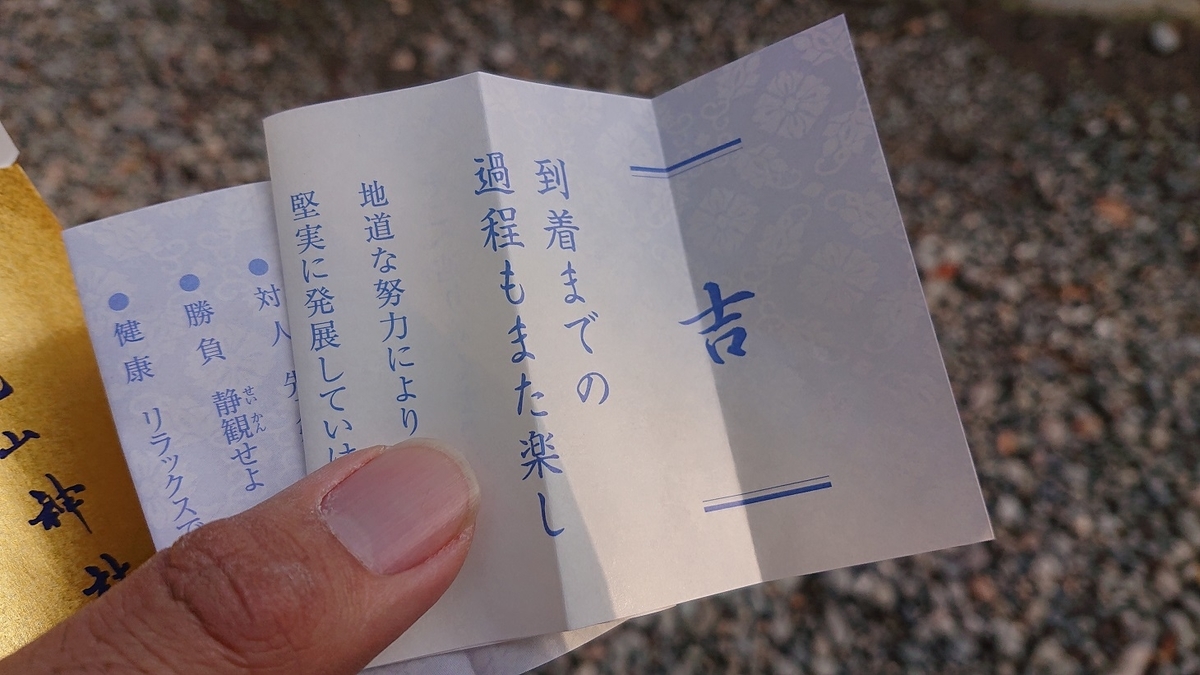 吉
到着までの
過程もまた楽し
地道な努力により
堅実に発展していけ
●対人
●勝負 静観せよ
せいかん
●健康 リラックスで
山神社